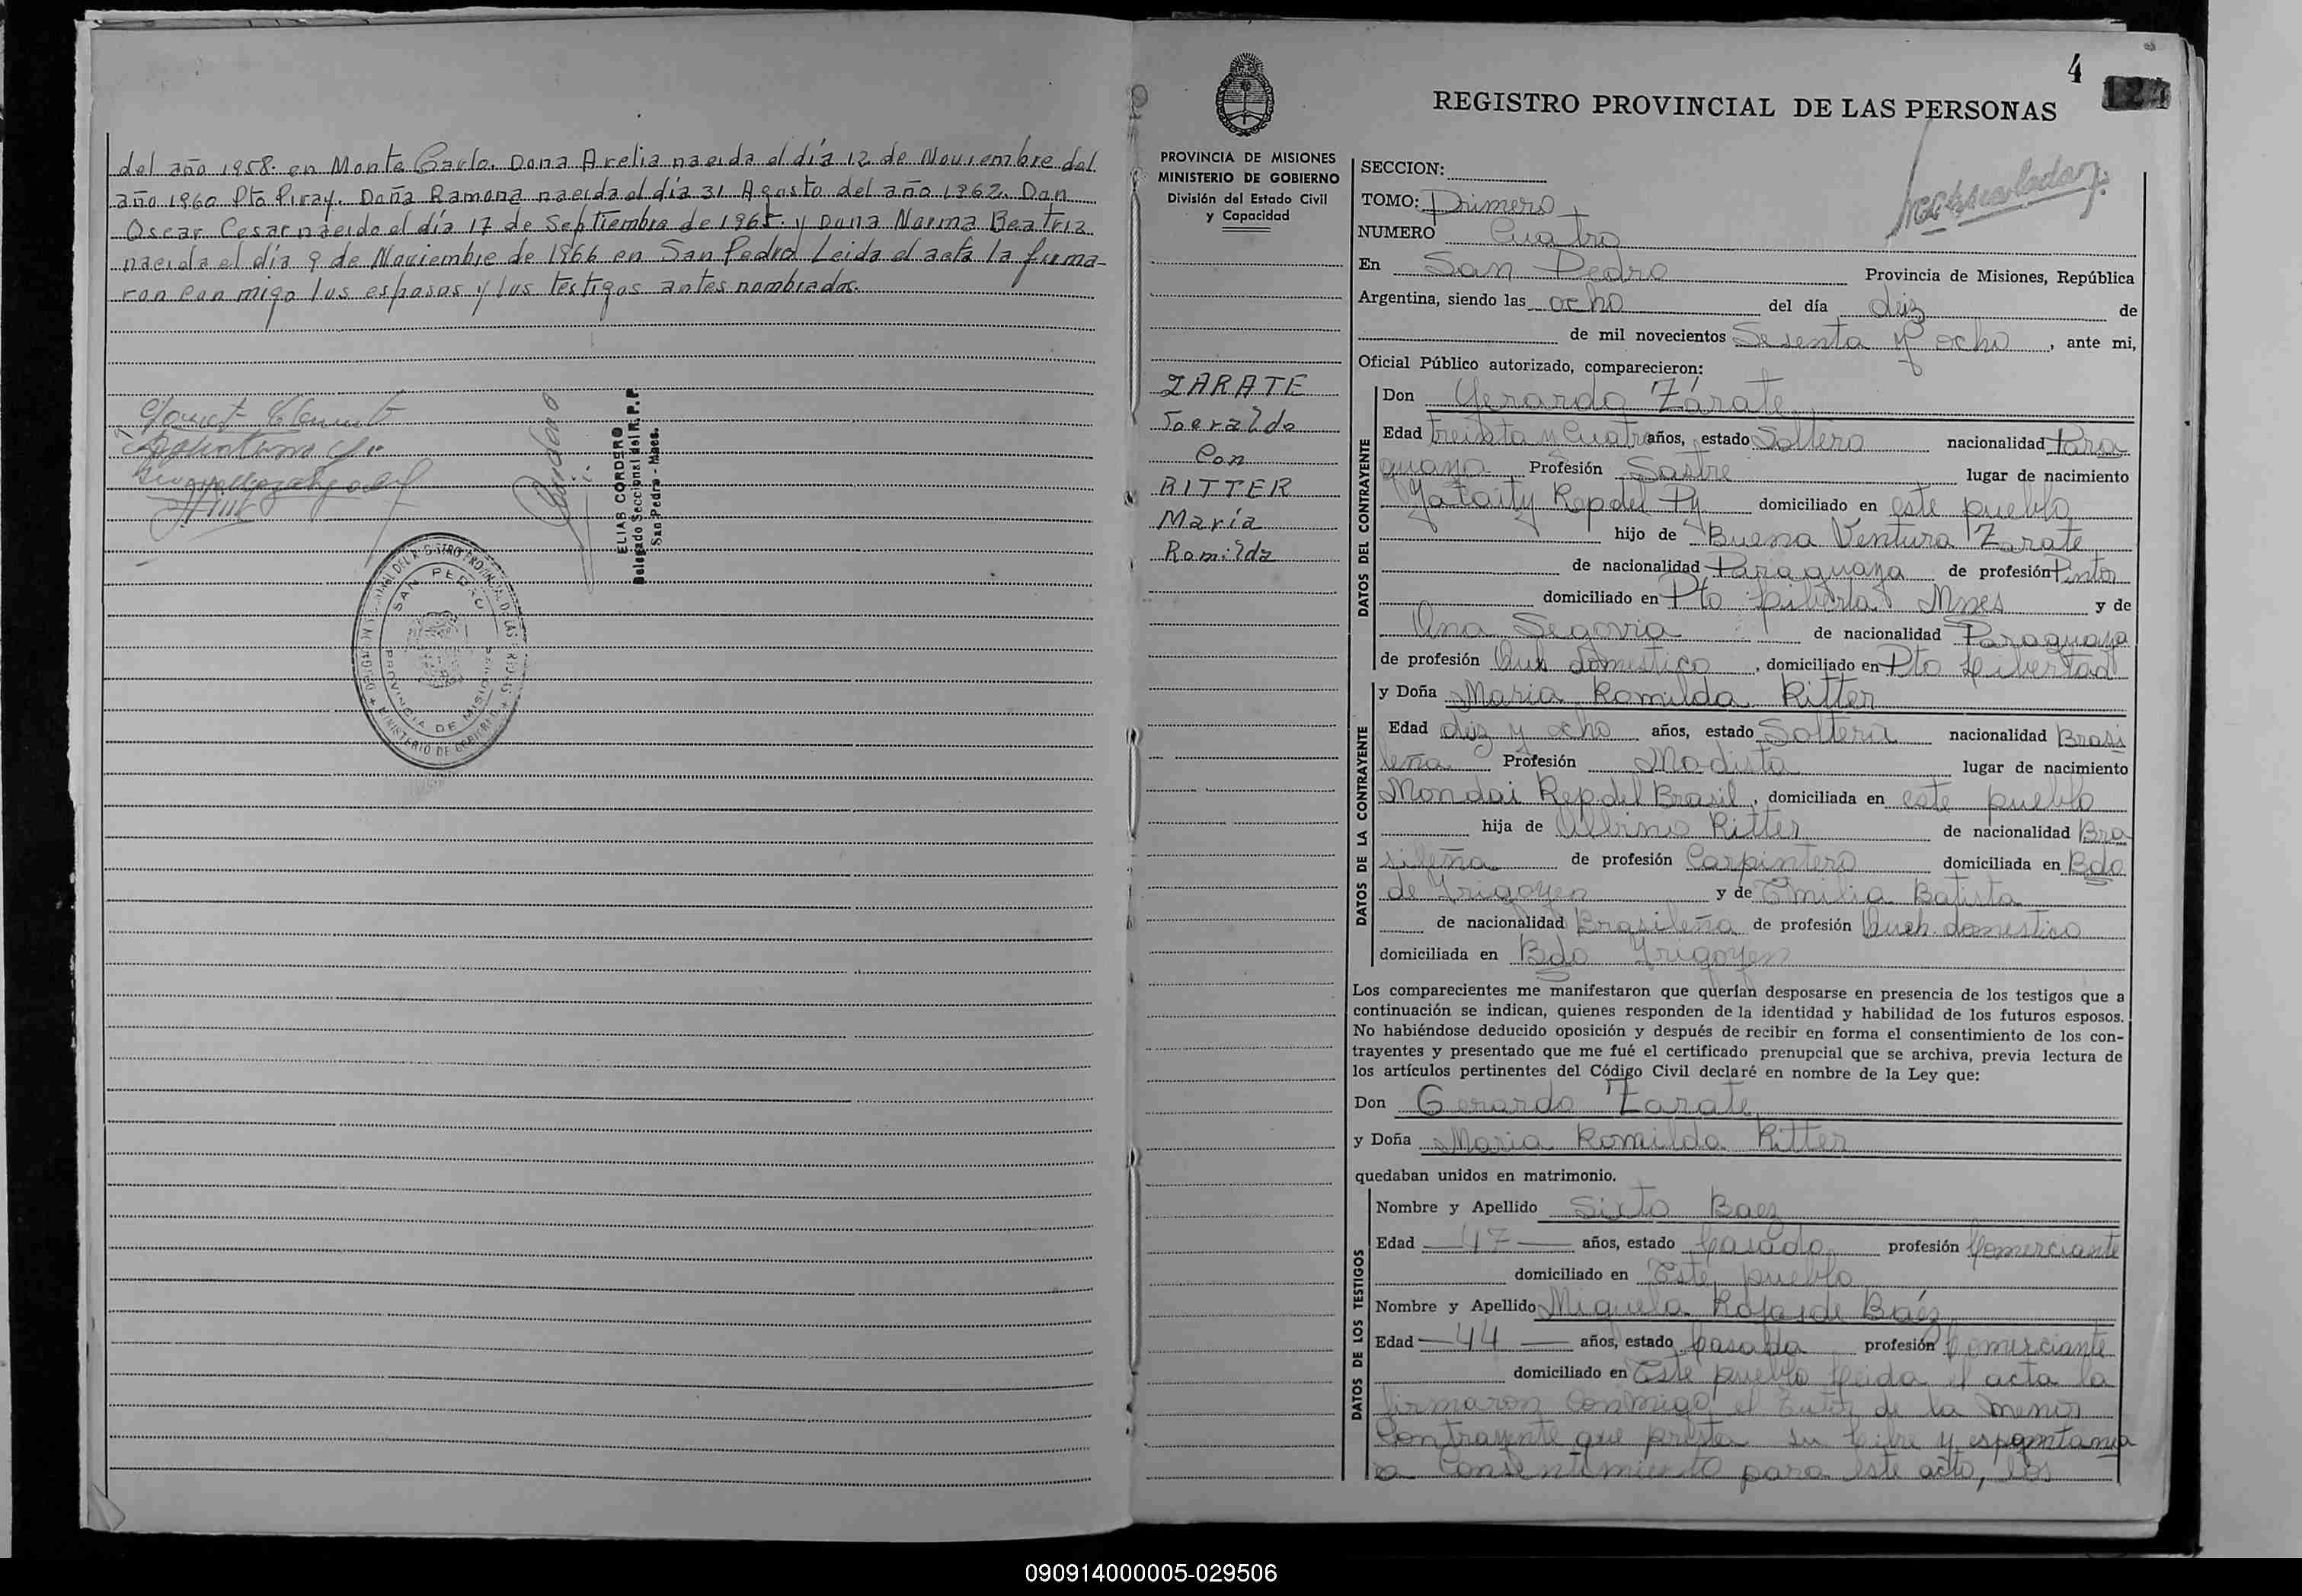 del año 1958. en Monte Carlo. Dona Arelia nacida el día 12 de Noviembre del
año 1960 Pto Piray. Doña Ramona nacida el día 31 Agosto del año 1962. Don
Oscar Cesar nacido el día 17 de Septiembre de 1965. y Dona Norma Beatriz
nacida el día 9 de Noviembre de 1966 en San Pedro Leida el acta la firma-
ron con migo los esposos y los testigos antes nombrados.
ELIAS CORDERO
Delegado Seccional del R. P. P.
San Pedro - Mnes.
SAN PEDRO
PROVINCIA DE MISIONES
MINISTERIO DE GOBIERNO
4
REGISTRO PROVINCIAL DE LAS PERSONAS
PROVINCIA DE MISIONES
MINISTERIO DE GOBIERNO
División del Estado Civil
y Capacidad
ZARATE
Con
RITTER
María
Romilda
SECCION:
TOMO: Primero
NUMERO Cuatro
En San Pedro Provincia de Misiones, República
Argentina, siendo las ocho del día diez de
de mil novecientos Sesenta y ocho, ante mi,
Oficial Público autorizado, comparecieron:
DATOS DEL CONTRAYENTE
Don Gerardo Zárate
Edad treinta y Cuatro años, estado Soltero nacionalidad Para
guaya Profesión Sastre lugar de nacimiento
Yataity Rep del Py. domiciliado en este pueblo
hijo de Buena Ventura Zarate
de nacionalidad Paraguaya de profesión Pintor
domiciliado en Pto Mnes y de
Ana Segovia de nacionalidad Paraguaya
de profesión domestico, domiciliado en Pto Libertad
DATOS DE LA CONTRAYENTE
y Doña Maria Romilda Ritter
Edad diez y ocho años, estado Soltera nacionalidad Brasi
leña Profesión Modista lugar de nacimiento
Mondai Rep. del Brasil, domiciliada en este pueblo
hija de Albino Ritter de nacionalidad Bra
sileña de profesión Carpintero domiciliada en Bdo
de Yrigoyen y de Emilia Batista
de nacionalidad Brasileña de profesión Queh. domestico
domiciliada en Bdo Yrigoyen
Los comparecientes me manifestaron que querían desposarse en presencia de los testigos que a
continuación se indican, quienes responden de la identidad y habilidad de los futuros esposos.
No habiéndose deducido oposición y después de recibir en forma el consentimiento de los con-
trayentes y presentado que me fué el certificado prenupcial que se archiva, previa lectura de
los artículos pertinentes del Código Civil declaré en nombre de la Ley que:
Don Gerardo Zarate
y Doña Maria Romilda Ritter
quedaban unidos en matrimonio.
DATOS DE LOS TESTIGOS
Nombre y Apellido Sixto Baez
Edad 47 años, estado Casado profesión Comerciante
domiciliado en Este pueblo
Nombre y Apellido Miguela Rojas de Baéz
Edad 44 años, estado Casada profesión Comerciante
domiciliado en Este pueblo Leida el acta la
firmaron conmigo el tutor de la menor
Contrayente que presta su libre y espontania
Consentimiento para este acto, los
090914000005-029506